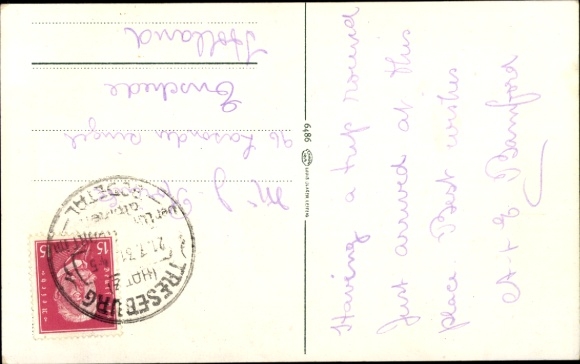 Having a trip round
Just arrived at this
place. Best wishes
A + E Bamford
Mr J.
96 Lasonder Singel
Enschede
Holland
6486
TRESEBURG
(HARZ)
21.7.31
BODETHAL
15 15